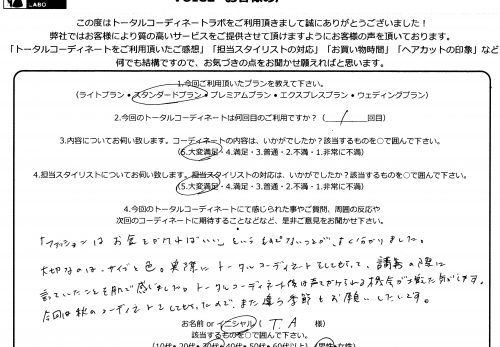 LABO
この度はトータルコーディネートラボをご利用頂きまして誠にありがとうございました！
弊社ではお客様により質の高いサービスをご提供させて頂けますようにお客様の声を頂いております。
「トータルコーディネートをご利用頂いたご感想」「担当スタイリストの対応」「お買い物時間」「ヘアカットの印象」など
何でも結構ですので、お気づきの点をお聞かせ願えればと思います。
1.今回ご利用頂いたプランを教えて下さい。
（ライトプラン・スタンダードプラン・プレミアムプラン・エクスプレスプラン・ウェディングプラン）
2.今回のトータルコーディネートは何回目のご利用ですか？（ 1 回目）
3.内容についてお伺い致します。コーディネートの内容は、いかがでしたか？該当するものを○で囲んで下さい。
（5.大変満足・4.満足・3.普通・2.不満・1.非常に不満）
4.担当スタイリストについてお伺い致します。担当スタイリストの対応は、いかがでしたか？該当するものを○で囲んで下さい。
（5.大変満足・4.満足・3.普通・2.不満・1.非常に不満）
4.今回のトータルコーディネートにて感じられた事やご質問、周囲の反応や
次回のコーディネートに期待することなどなど、是非ご意見をお聞かせ下さい。
「ファッションはお金をかければいい」というものでないことが、よく分かりました。
大切なのは、サイズと色。実際にトータルコーディネートをしてもらって、講義の際に
言っていたことを肌で感じました。トータルコーディネート後は声をかけられる機会が増えた気がします。
今回は秋のコーディネートをしてもらったので、また違う季節もお願いしたいです。
お名前 or イニシャル（ T.A 様）
（10代・20代・30代・40代・50代・60代以上）（男性・女性）